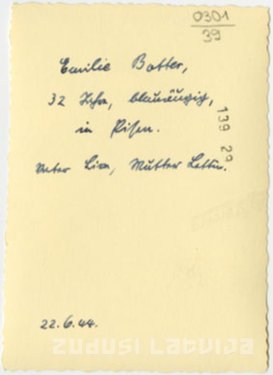 0301
39
Emilie Botter,
32 Jahre, blauäugig,
in Pissen.
Vater Live, Mutter Lettin.
139 29
22.6.44.
zudusi Latvija